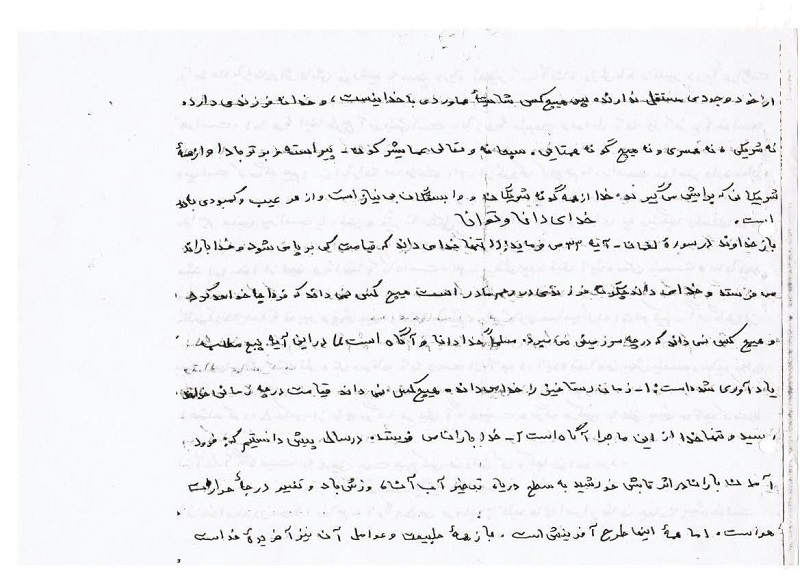 از خود وجودی مستقل ندارند پس هیچ کس شایستهٔ هماوردی با خدا نیست، و خدا نه فرزندی دارد
نه شریکی، نه همسری و نه هیچ گونه همتایی. سبحانه و تعالی عما یشرکون - پیراسته و برتر باد از همهٔ
شریکانی که برایش می گیرند. خدا از همه گونه شریکان و وابستگان بی نیاز است و از هر عیب و کمبودی
است.
خدای دانا و توانا
باز خداوند در سورهٔ لقمان - آیه ۳۳ می فرماید: تنها خدا می داند که قیامت کی بر پا می شود و خدا باران
می فرستد و خدا می داند که فرزندی در رحم مادر است هیچ کس نمی داند که فردا چه خواهد کرد
و هیچ کس نمی داند که در چه سرزمینی می میرد. مسلما خدا دانا و آگاه است در این آیه پنج مطلب
یادآوری شده است: ۱- زمان رستاخیز را خدا می داند، هیچ کس نمی داند قیامت در چه زمانی خواهد
رسید و تنها خدا از این ماجرا آگاه است ۲- خدا باران می فرستد. در سال پیش دانستیم که: فرود
آمدن باران در اثر تابش خورشید به سطح دریا، تبخیر آب آنها، وزش باد و تغییر درجهٔ حرارت
هواست. اما همهٔ اینها طرح آفرینش است. باز همهٔ طبیعت و عوامل آن نیز آفریدهٔ خداست